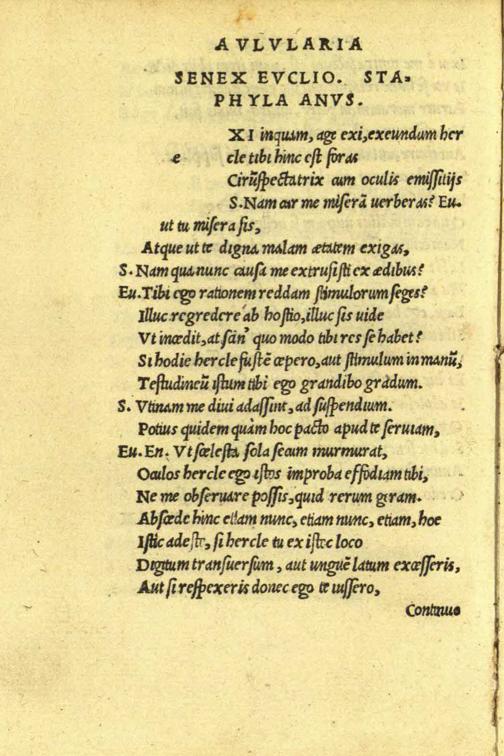 AVLVLARIA
SENEX EVCLIO. STA-
PHYLA ANVS.
XI inquam, age exi, exeundum her
e cle tibi hinc est foras
Cirũspectatrix cum oculis emissitijs
S. Nam cur me miserã uerberas? Eu.
ut tu misera sis,
Atque ut te digna malam ætatem exigas,
S. Nam qua nunc causa me extrusisti ex ædibus?
Eu. Tibi ego rationem reddam stimulorum seges?
Illuc regredere ab hostio, illuc sis uide
Vt incedit, at sãn' quo modo tibi res se habet?
Si hodie hercle fustẽ cœpero, aut stimulum in manũ,
Testudineũ istum tibi ego grandibo gradum.
S. Vtinam me diui adassint, ad suspendium.
Potius quidem quàm hoc pacto apud te seruiam,
Eu. En. Vt scelesta sola secum murmurat,
Oculos hercle ego istos improba effodiam tibi,
Ne me obseruare possis, quid rerum geram.
Abscede hinc etiam nunc, etiam nunc, etiam, hoe
Istic adesto, si hercle tu ex istoc loco
Digitum transuersum, aut unguẽ latum excesseris,
Aut si respexeris donec ego te iussero,
Continuo